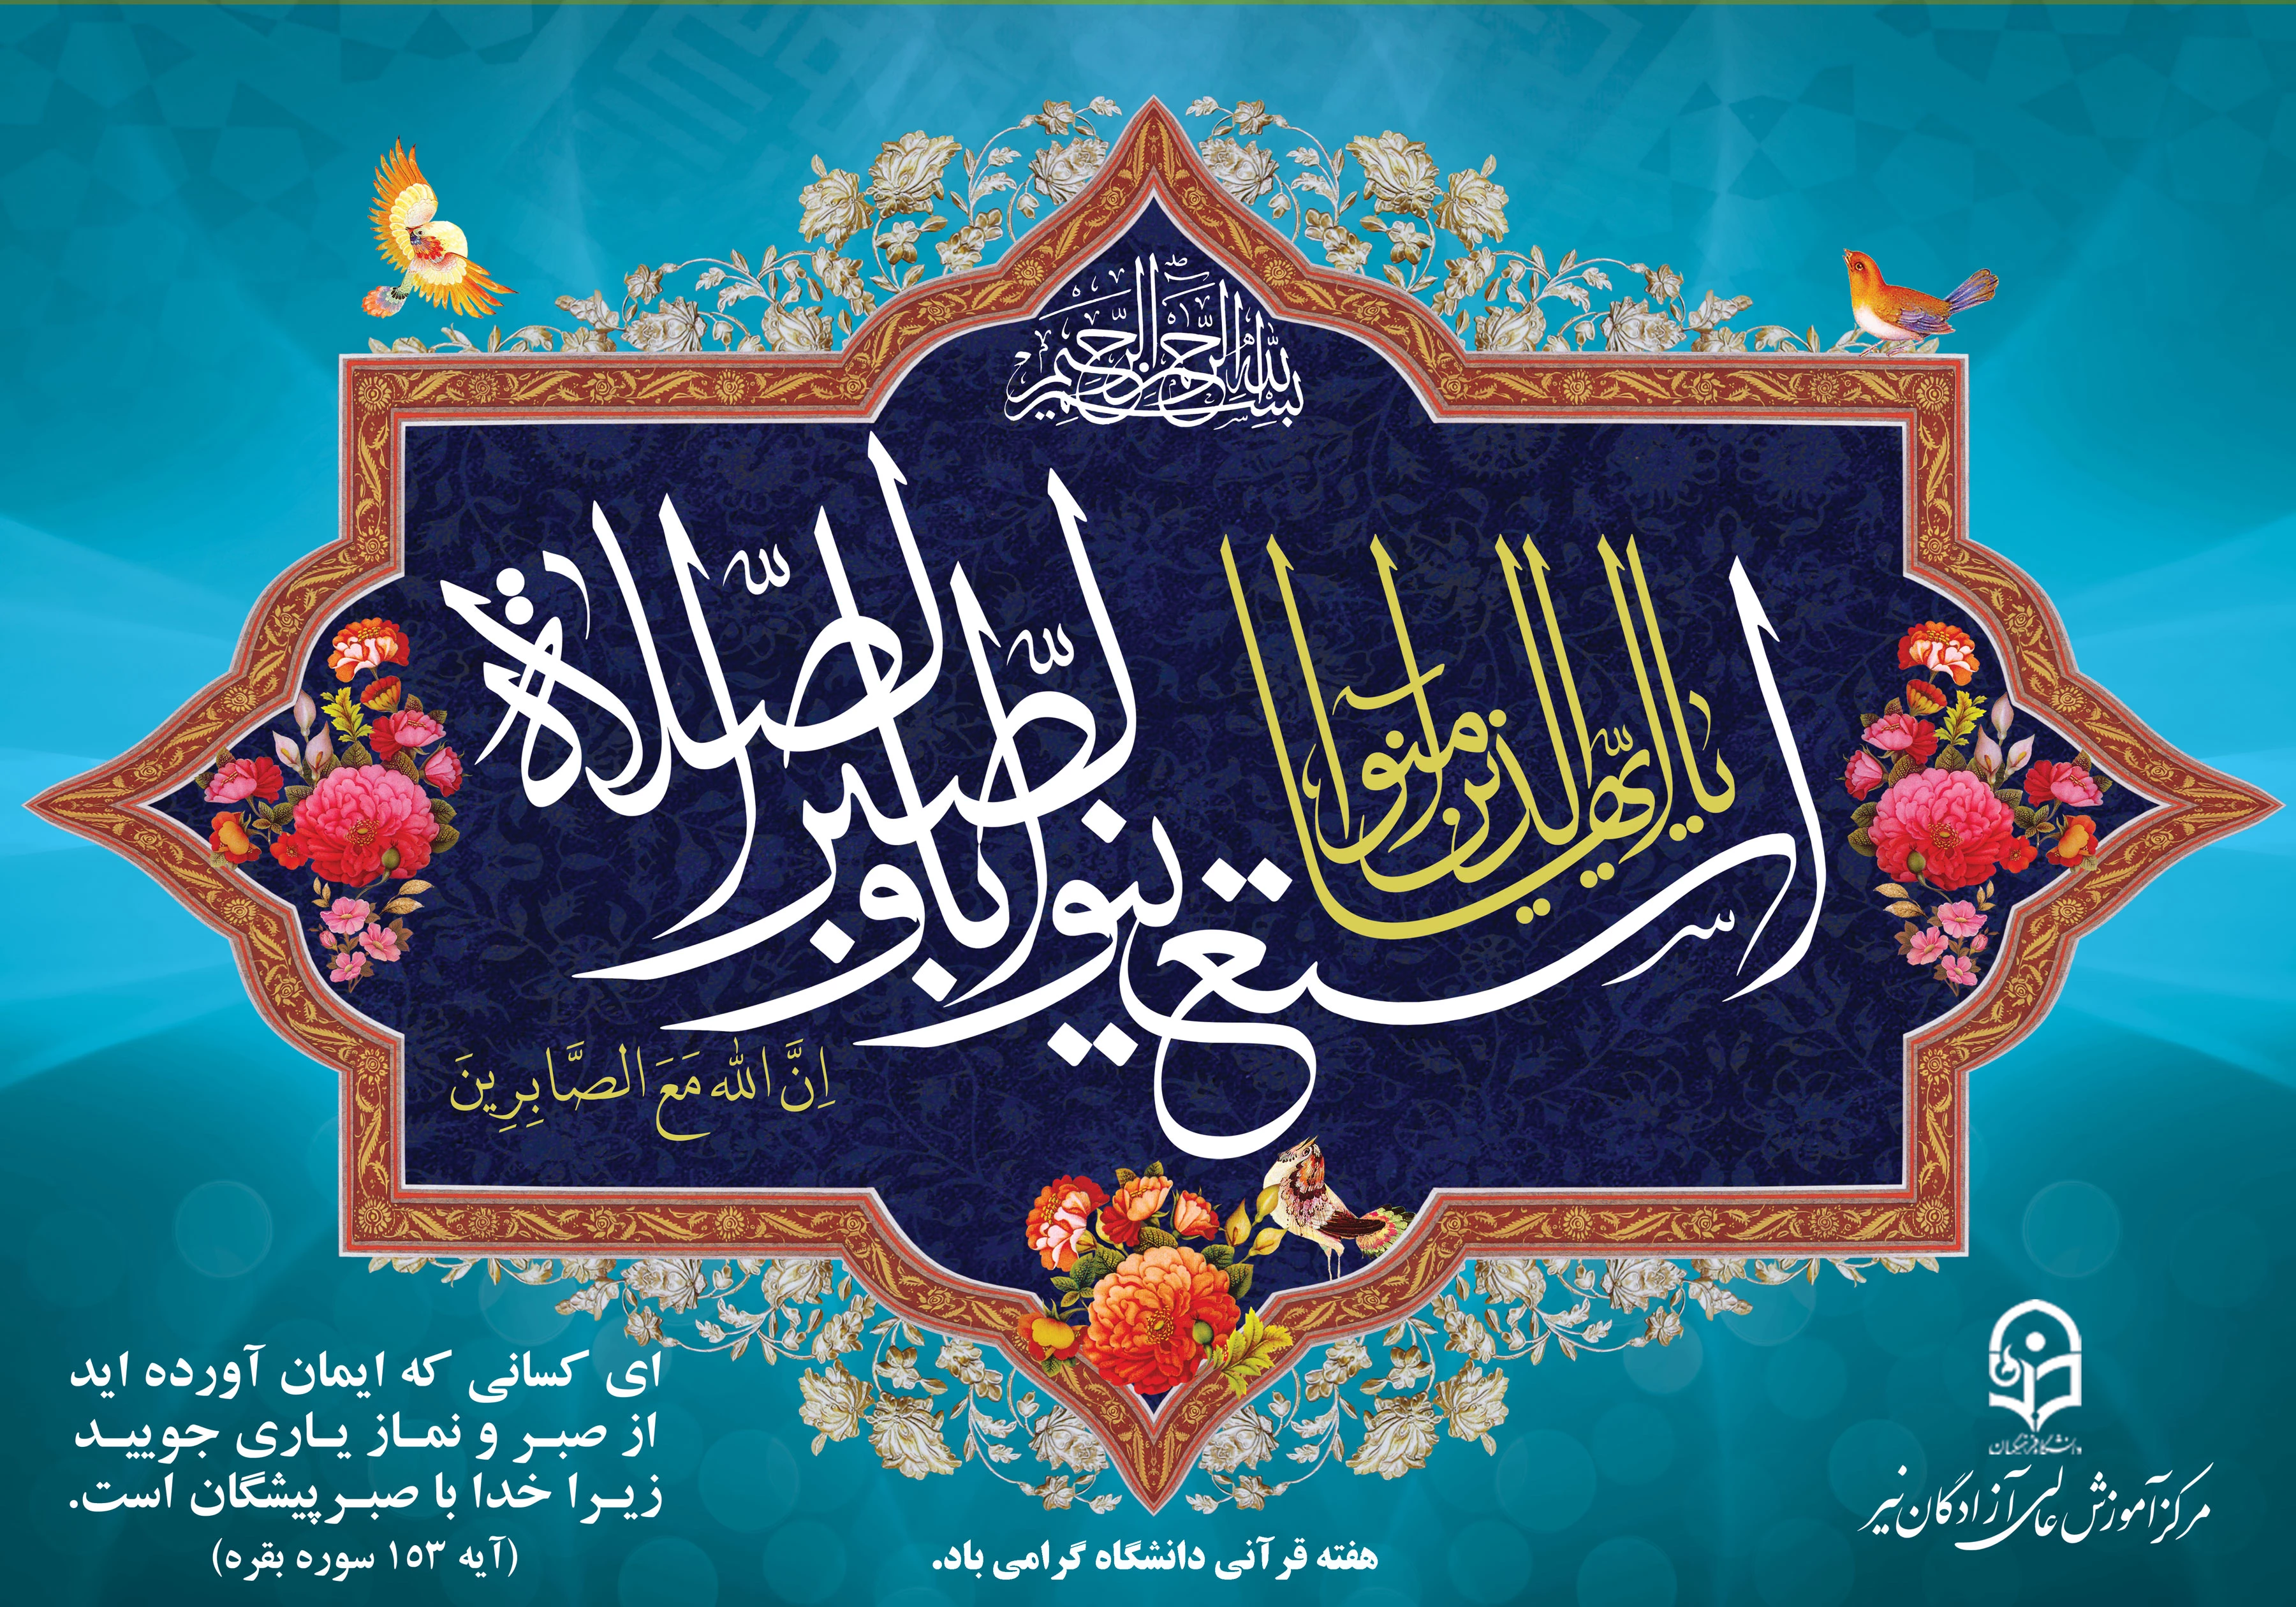 بسم الله الرحمن الرحیم
یا ایها الذین آمنوا
استعینوا بالصبر و الصلاة
اِنَّ الله مَعَ الصَّابِرِینَ
ای کسانی که ایمان آورده اید
از صبر و نماز یاری جویید
زیرا خدا با صبرپیشگان است.
(آیه ۱۵۳ سوره بقره)
هفته قرآنی دانشگاه گرامی باد.
دانشگاه فرهنگیان
مرکز آموزش عالی آزادگان نیر